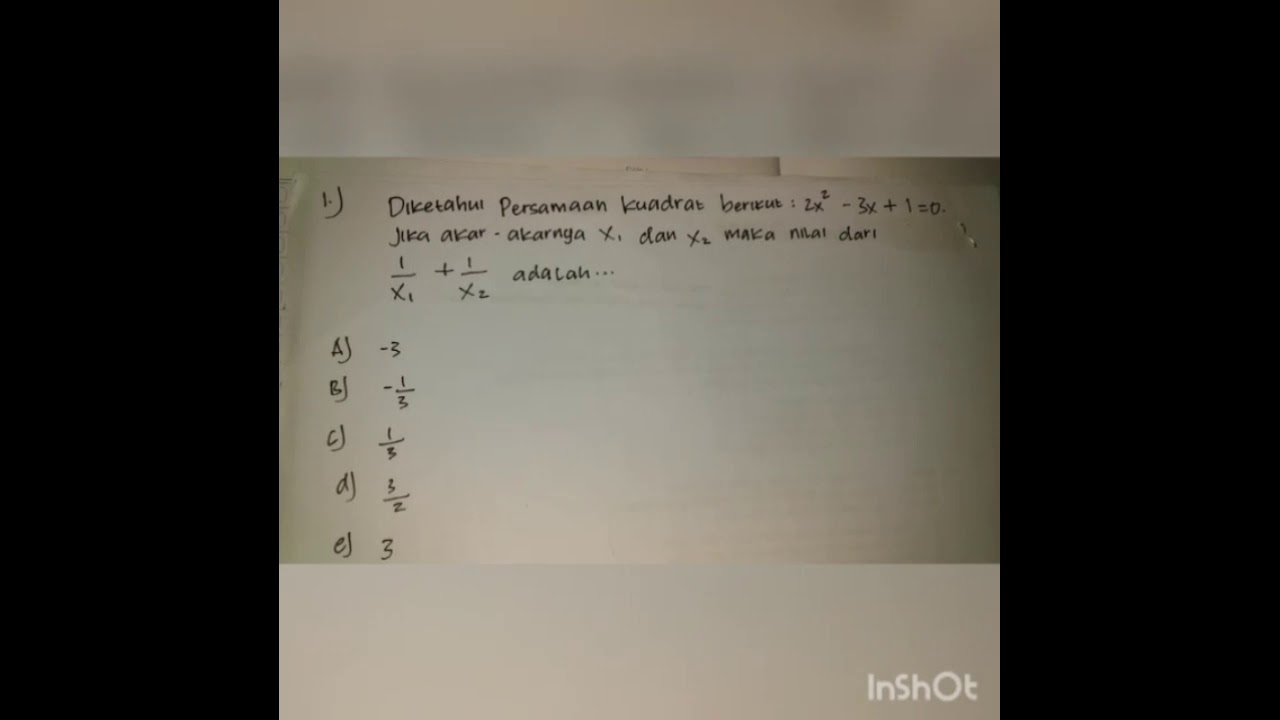 1.) Diketahui Persamaan kuadrat berikut : 2x² - 3x + 1 = 0.
Jika akar - akarnya x₁ dan x₂ maka nilai dari
1/x₁ + 1/x₂ adalah...
A) -3
B) -1/3
c) 1/3
d) 3/2
e) 3
InShOt